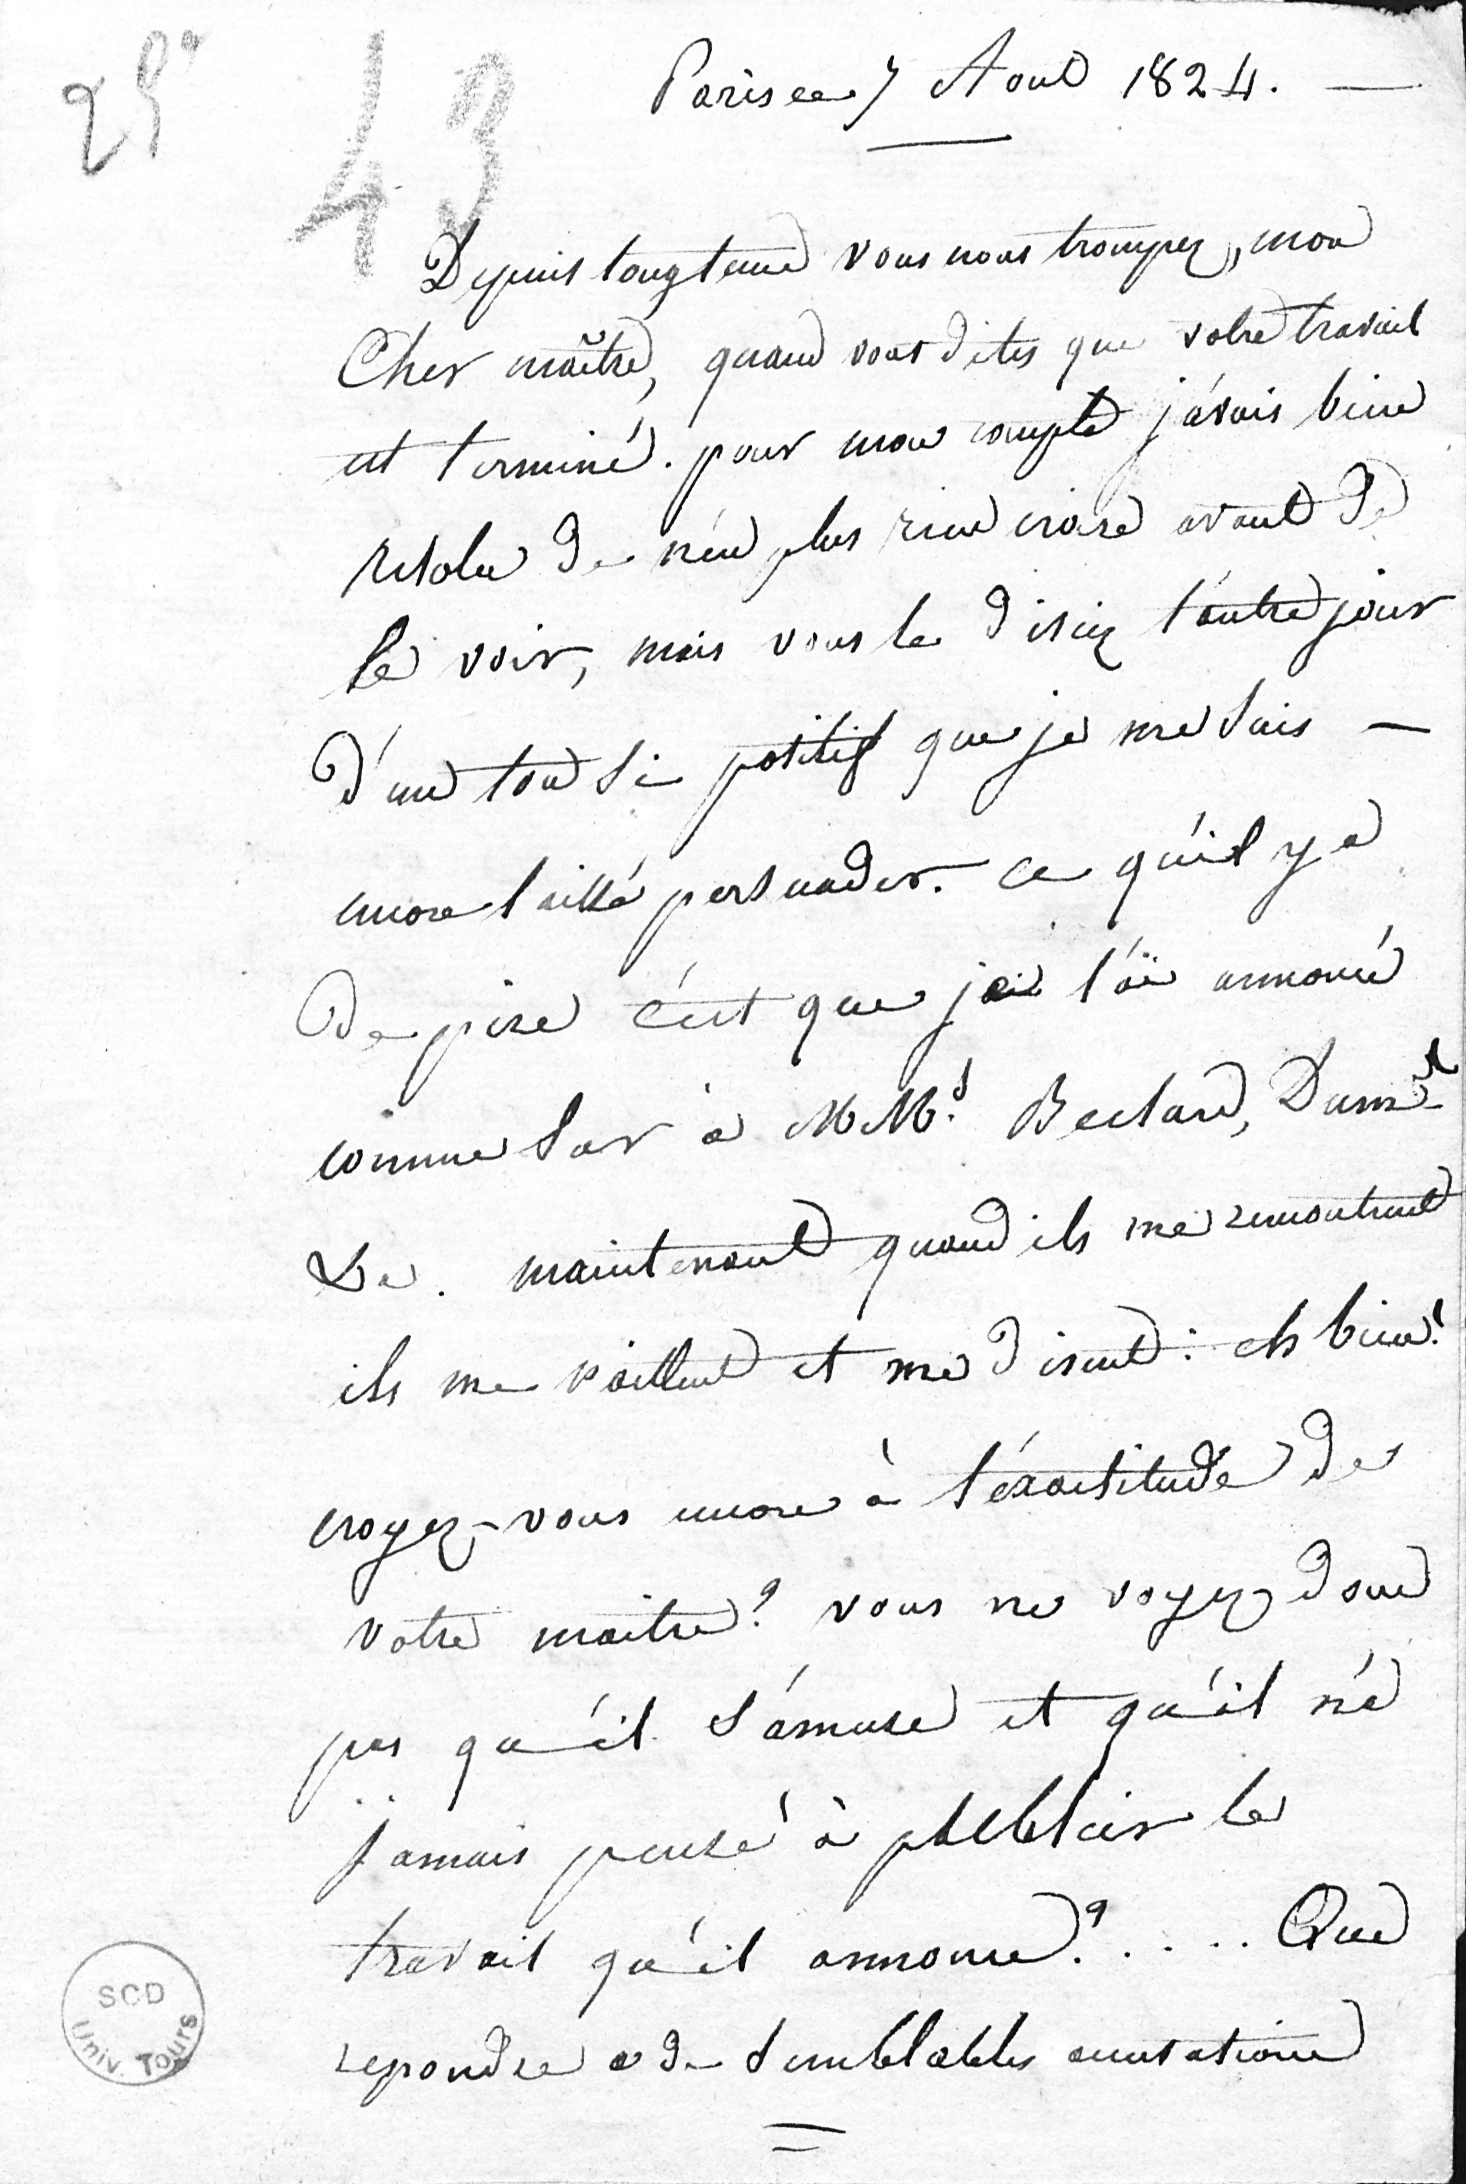 25e
43
Paris ce 7 Aout 1824. —
Depuis longtems vous nous trompez, mon
Cher maître, quand vous dites que votre travail
est terminé. pour mon compte j'avais bien
résolu de n'en plus rien croire avant de
le voir, mais vous le disiez l'autre jour
d'un ton si positif que je me suis —
encore laissé persuader. Ce qu'il y a
de pire c'est que je l'ai annoncé
comme sur à M.Mrs. Beclard, Duml
&a. maintenant quand ils me rencontrent
ils me raillent et me disent: eh bien!
croyez-vous encore à l'éxactitude de
votre maitre? vous ne voyez donc
pas qu'il s'amuse et qu'il n'a
jamais pensé à publier le
travail qu'il annonce?.... Que
repondre a de semblables accusations
SCD
Univ. Tours